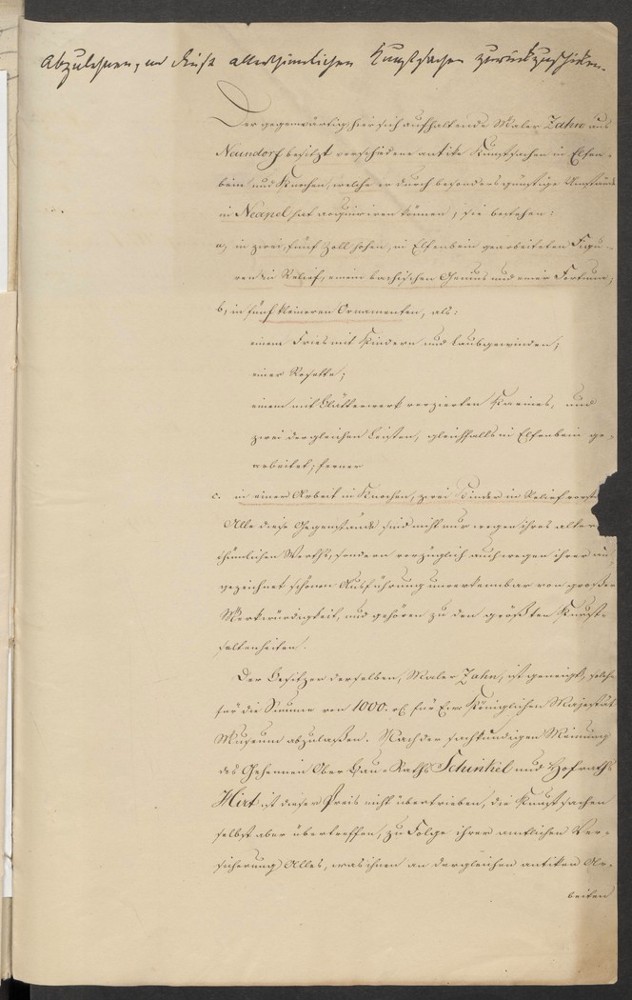 Abzulehnen, und diese alterthümlichen Kunstsachen zurückzuschicken.
Der gegenwärtig hier sich aufhaltende Maler Zahn aus
Nenndorf besitzt verschiedene antike Kunstsachen in Elfen-
bein und Knochen, welche er durch besonders günstige Umstände
in Neapel hat acquiriren können; sie bestehen:
a, in zwei, fünf Zoll hohen, in Elfenbein gearbeiteten Figu-
ren in Relief, einem bachischen Genius und einer Fortuna;
b, in fünf kleineren Ornamenten, als:
einem Fries mit Kindern und Laubgewinden;
einer Rosette;
einem mit Blätterwerk verzierten Karnies, und
zwei dergleichen Leisten, gleichfalls in Elfenbein ge-
arbeitet; ferner
c. in einer Arbeit in Knochen, zwei Kinder in Relief
Alle diese Gegenstände sind nicht nur wegen ihres alter-
thümlichen Werths, sondern vorzüglich auch wegen ihrer aus-
gezeichnet schönen Ausführung unverkennbar von großer
Merkwürdigkeit, und gehören zu den größten Kunst-
seltenheiten.
Der Besitzer derselben, Maler Zahn, ist geneigt, solche
für die Summe von 1000. für Eurer Königlichen Majestät
Museum abzulassen. Nach der sachkundigen Meinung
des Geheimen Ober-Bau-Raths Schinkel und Hofraths
Hirt ist dieser Preis nicht übertrieben, die Kunstsachen
selbst aber übertreffen, zu Folge ihrer amtlichen Ver-
sicherung Alles, was ihnen an dergleichen antiken Ar-
beiten